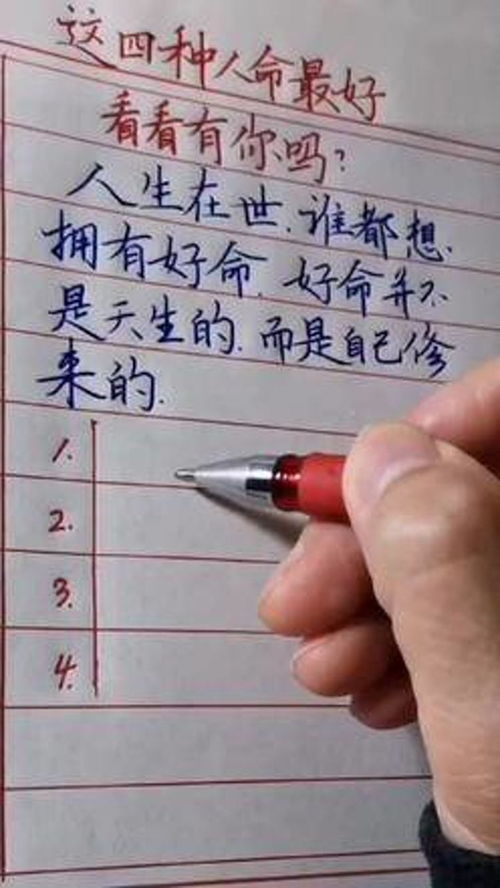 这四种人命最好
看看有你吗?
人生在世.谁都想.
拥有好命.好命并不
是天生的.而是自己修
来的.
1.
2.
3.
4.